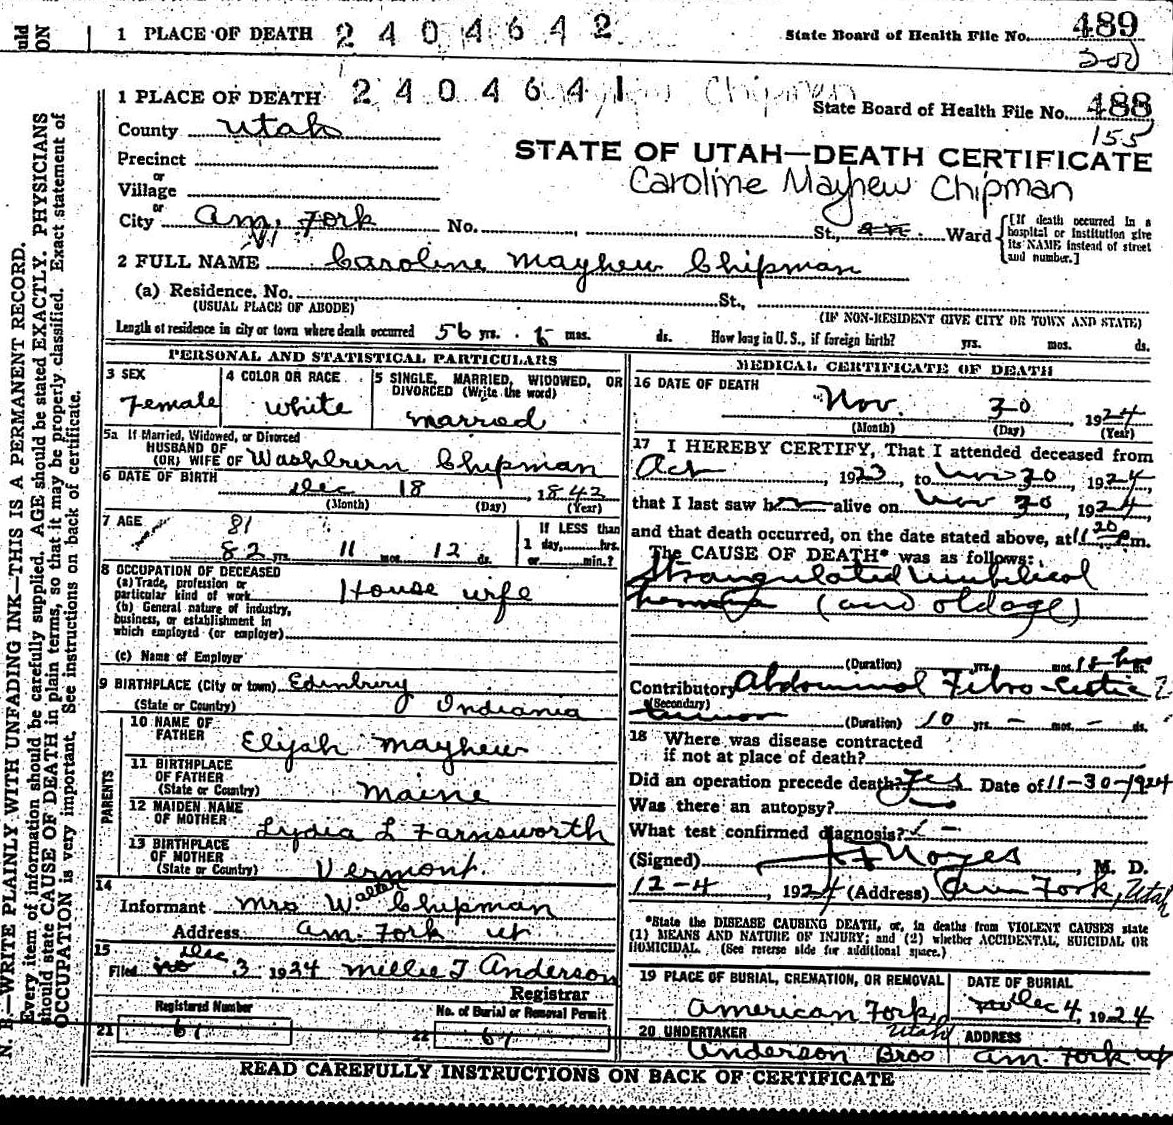 uld
ON
1 PLACE OF DEATH 2 4 0 4 6 4 2 State Board of Health File No. 489
200
1 PLACE OF DEATH 2 4 0 4 6 4 1 Chipman State Board of Health File No. 488
155
County Utah
STATE OF UTAH—DEATH CERTIFICATE
Caroline Mayhew Chipman
Precinct
or
Village
or
City Am. Fork No. , St., Ward {[If death occurred in a hospital or institution give its NAME instead of street and number.]
2 FULL NAME Caroline Mayhew Chipman
(a) Residence. No. St.,
(USUAL PLACE OF ABODE) (IF NON-RESIDENT GIVE CITY OR TOWN AND STATE)
Length of residence in city or town where death occurred 56 yrs. mos. ds. How long in U.S., if foreign birth? yrs. mos. ds.
PERSONAL AND STATISTICAL PARTICULARS
3 SEX Female
4 COLOR OR RACE white
5 SINGLE, MARRIED, WIDOWED, OR DIVORCED (Write the word) married
5a If Married, Widowed, or Divorced
HUSBAND OF
(OR) WIFE OF Washburn Chipman
6 DATE OF BIRTH Dec 18, 1842
(Month) (Day) (Year)
7 AGE 81
82 yrs. 11 mos. 12 ds.
If LESS than
1 day, hrs.
or min.?
8 OCCUPATION OF DECEASED
(a) Trade, profession or
particular kind of work House wife
(b) General nature of industry,
business, or establishment in
which employed (or employer)
(c) Name of Employer
9 BIRTHPLACE (City or town) Edinbury
(State or Country) Indiania
PARENTS
10 NAME OF
FATHER Elijah Mayhew
11 BIRTHPLACE
OF FATHER
(State or Country) Maine
12 MAIDEN NAME
OF MOTHER Lydia L Farnsworth
13 BIRTHPLACE
OF MOTHER
(State or Country) Vermont.
14
Informant Mrs W. Chipman
Address Am. Fork ut
15 Dec
Filed 3 1924 Millie T Anderson
Registrar
Registered Number No. of Burial or Removal Permit
21 61 22 61
MEDICAL CERTIFICATE OF DEATH
16 DATE OF DEATH
Nov. 30, 1924
(Month) (Day) (Year)
17 I HEREBY CERTIFY, That I attended deceased from
Oct, 1923, to Nov 30, 1924,
that I last saw her alive on Nov 30, 1924
and that death occurred, on the date stated above, at 11 20 Pm.
The CAUSE OF DEATH* was as follows:
Strangulated umbilical
hernia (and old age)
(Duration) yrs. mos. 18 hrs ds.
Contributory Abdominal Fibro-Cistic ?
(Secondary)
tumor (Duration) 10 yrs. — mos. — ds.
18 Where was disease contracted
if not at place of death?
Did an operation precede death? Yes Date of 11-30-1924
Was there an autopsy?
What test confirmed diagnosis?
(Signed) Noyes, M. D.
12-4, 1924 (Address) Am Fork, Utah
*State the DISEASE CAUSING DEATH, or, in deaths from VIOLENT CAUSES state
(1) MEANS AND NATURE OF INJURY; and (2) whether ACCIDENTAL, SUICIDAL OR
HOMICIDAL. (See reverse side for additional space.)
19 PLACE OF BURIAL, CREMATION, OR REMOVAL
American Fork, Utah
DATE OF BURIAL
Dec 4, 1924
20 UNDERTAKER
Anderson Bros
ADDRESS
Am. Fork ut
READ CAREFULLY INSTRUCTIONS ON BACK OF CERTIFICATE
N. B.—WRITE PLAINLY WITH UNFADING INK—THIS IS A PERMANENT RECORD.
Every item of information should be carefully supplied. AGE should be stated EXACTLY. PHYSICIANS
should state CAUSE OF DEATH in plain terms, so that it may be properly classified. Exact statement of
OCCUPATION is very important. See instructions on back of certificate.